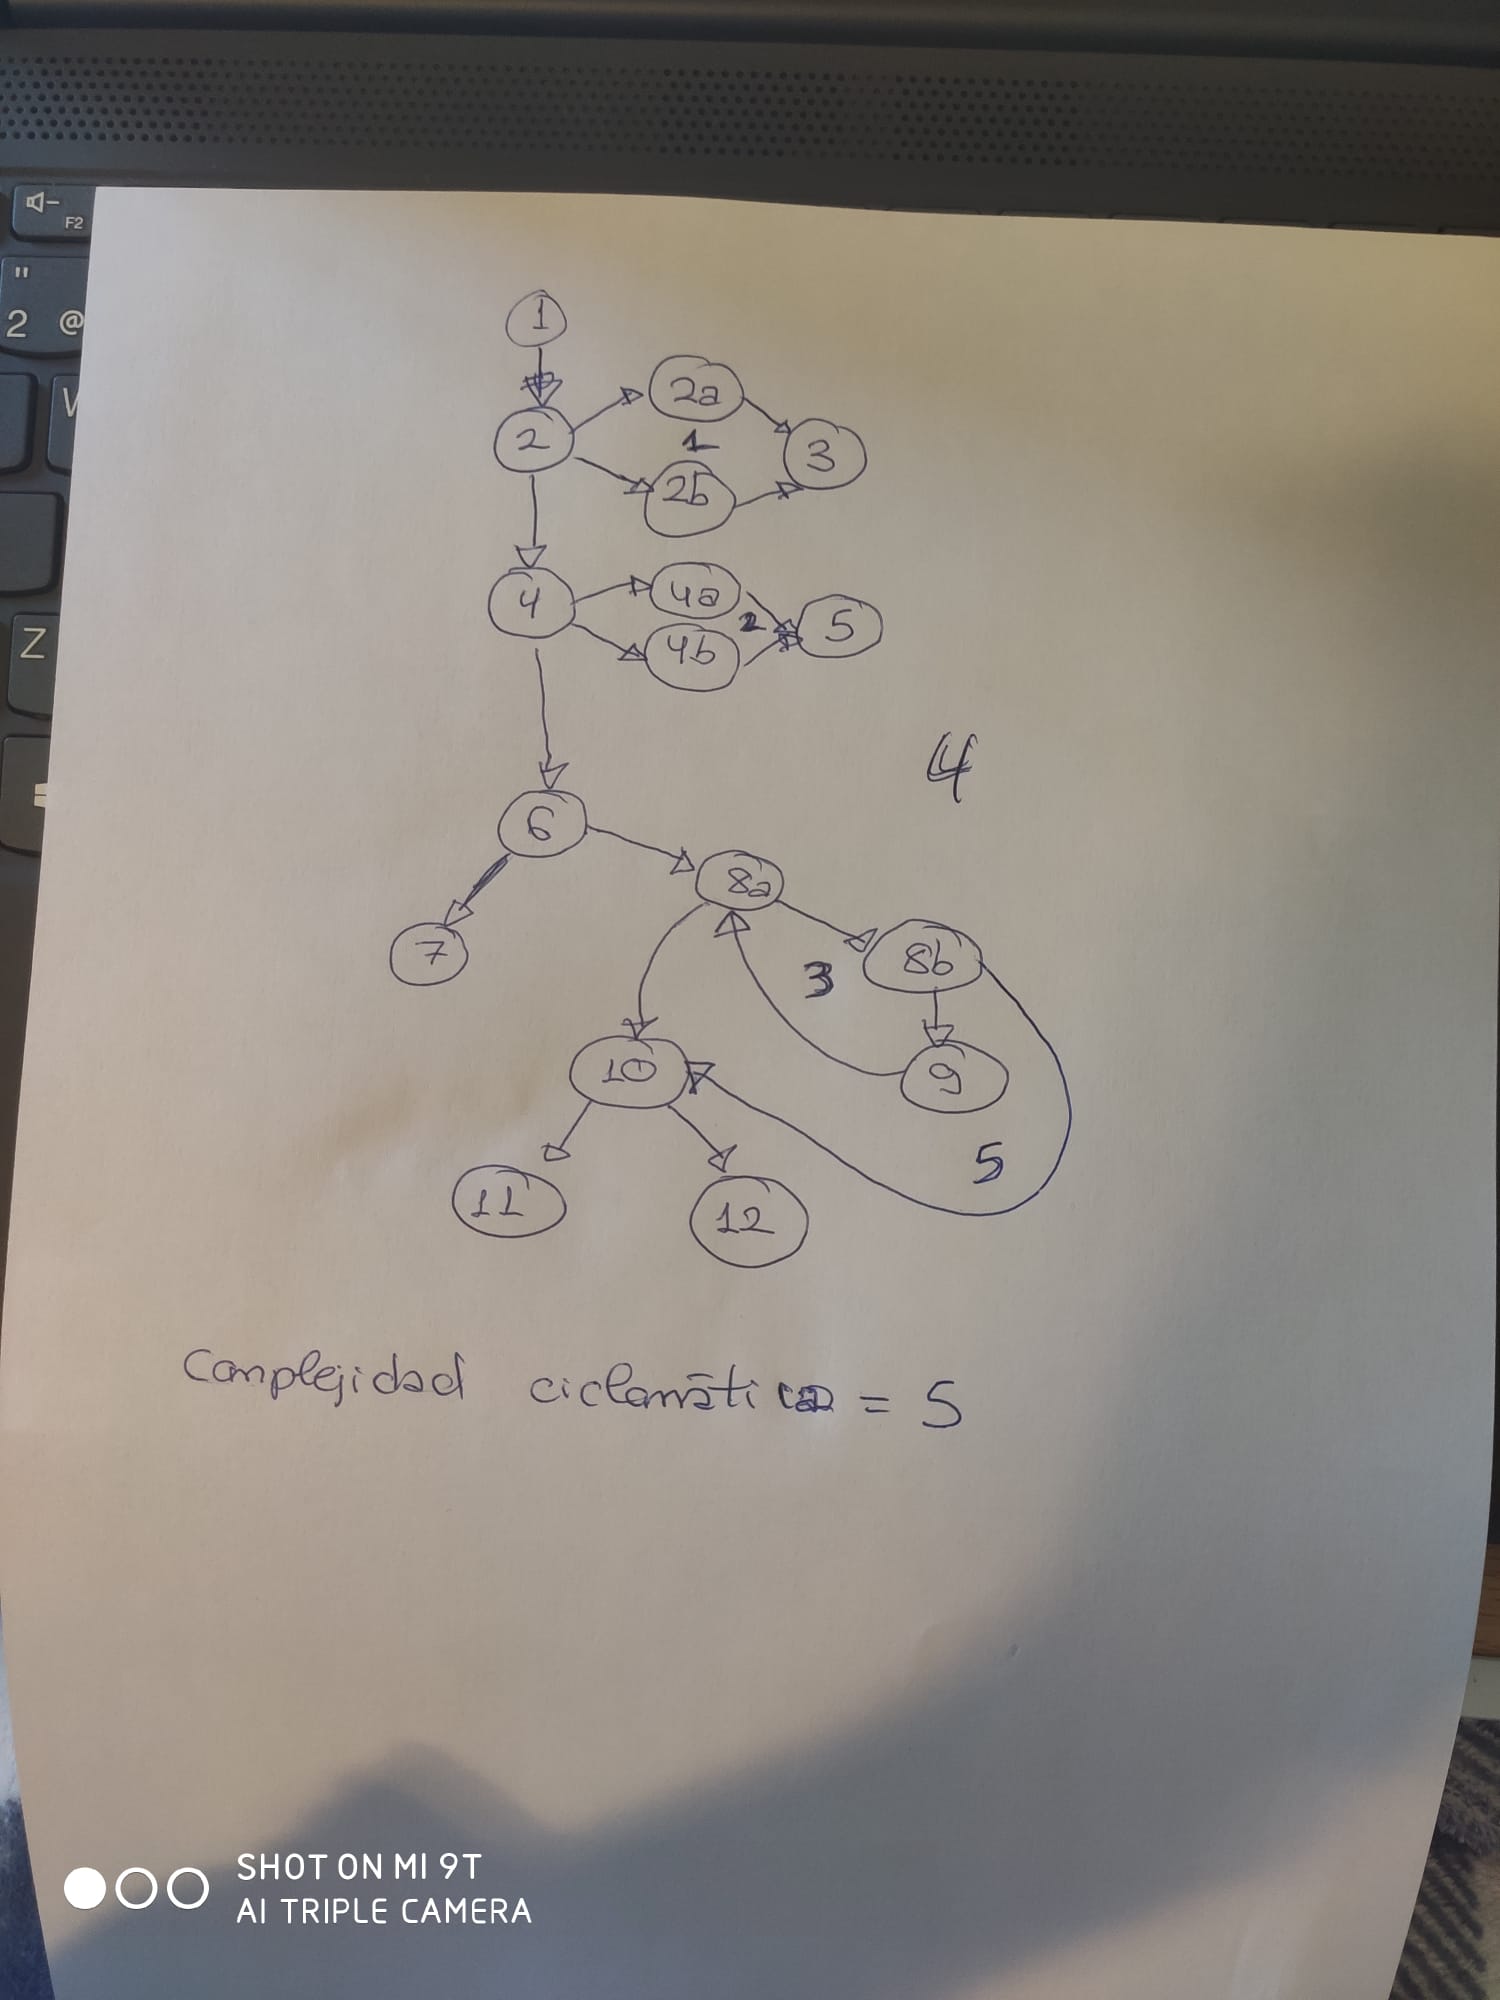 F2
"
2 @
W
Z
1
2a
2
1
3
2b
4
4a
2
5
4b
4
6
8a
7
8b
3
10
9
5
11
12
Complejidad ciclomática = 5
SHOT ON MI 9T
AI TRIPLE CAMERA